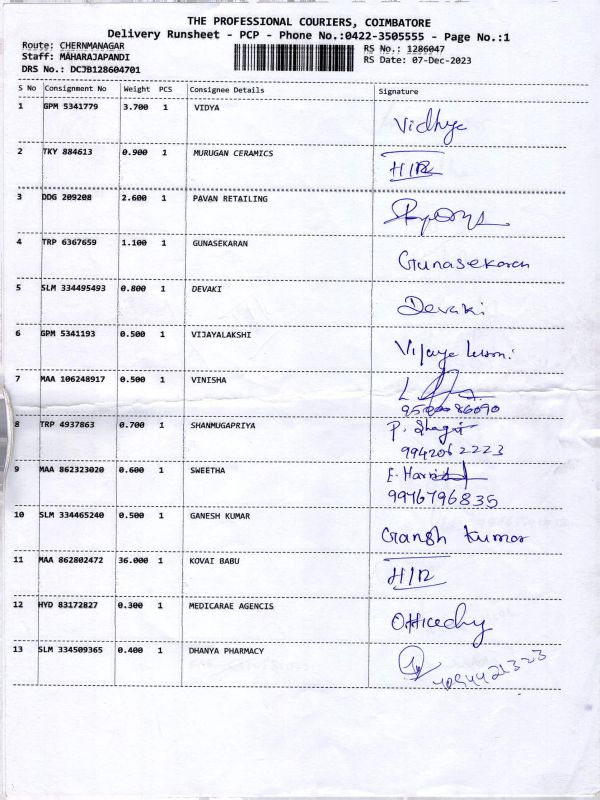 THE PROFESSIONAL COURIERS, COIMBATORE
Delivery Runsheet - PCP - Phone No.:0422-3505555 - Page No.:1
Route: CHERNMANAGAR RS No.: 1286047
Staff: MAHARAJAPANDI RS Date: 07-Dec-2023
DRS No.: DCJB128604701
S No Consignment No Weight PCS Consignee Details Signature
1 GPM 5341779 3.700 1 VIDYA Vidhya
2 TKY 884613 0.900 1 MURUGAN CERAMICS
3 DDG 209208 2.600 1 PAVAN RETAILING
4 TRP 6367659 1.100 1 GUNASEKARAN Gunasekaran
5 SLM 334495493 0.800 1 DEVAKI Devaki
6 GPM 5341193 0.500 1 VIJAYALAKSHI
7 MAA 106248917 0.500 1 VINISHA
8 TRP 4937863 0.700 1 SHANMUGAPRIYA P.
9942062223
9 MAA 862323020 0.600 1 SWEETHA
9976796835
10 SLM 334465240 0.500 1 GANESH KUMAR Gansh kumar
11 MAA 862802472 36.000 1 KOVAI BABU H/R
12 HYD 83172827 0.300 1 MEDICARAE AGENCIS
13 SLM 334509365 0.400 1 DHANYA PHARMACY